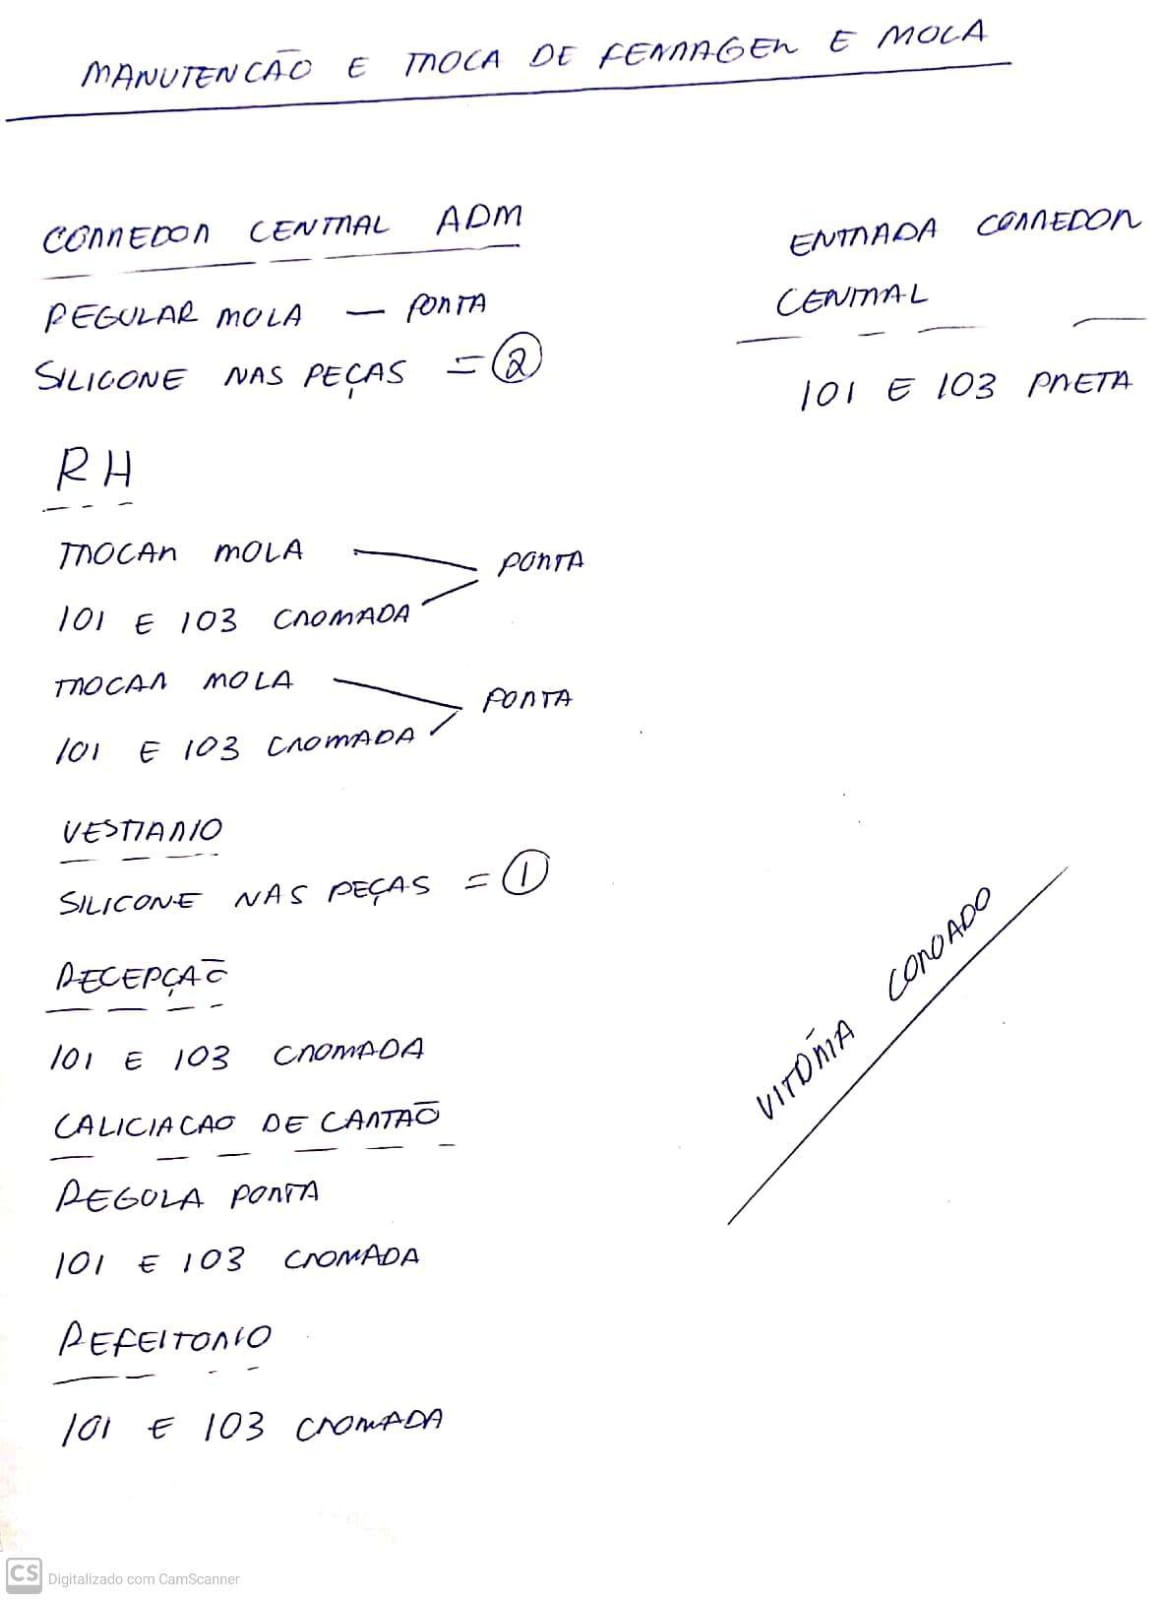 MANUTENCÃO E TROCA DE FERRAGEM E MOLA
CORREDOR CENTRAL ADM
REGULAR MOLA — PORTA
SILICONE NAS PEÇAS = 2
RH
TROCAR MOLA
PORTA
101 E 103 CROMADA
TROCAR MOLA
PORTA
101 E 103 CROMADA
VESTIARIO
SILICONE NAS PEÇAS = 1
RECEPÇÃO
101 E 103 CROMADA
CALICIACAO DE CARTAÕ
REGOLA PORTA
101 E 103 CROMADA
REFEITORIO
101 E 103 CROMADA
ENTRADA CORREDOR
CENTRAL
101 E 103 PRETA
VITÓRIA COROADO
CS Digitalizado com CamScanner